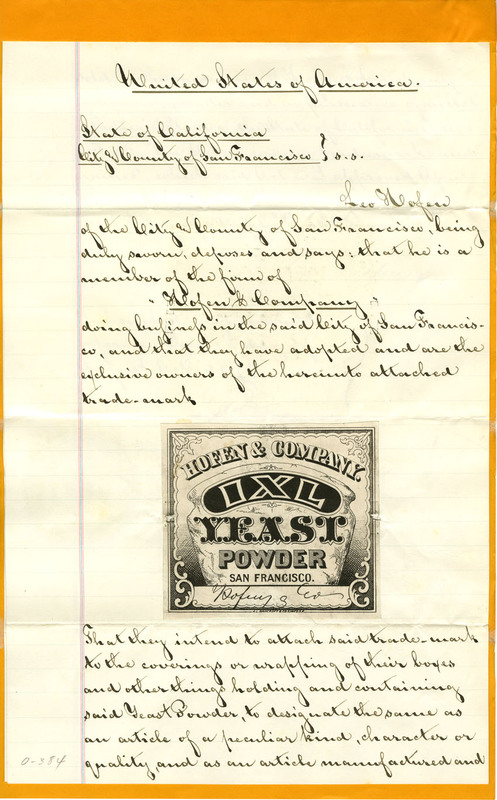 United States of America.
State of California
City & County of San Francisco } s.s.
Leo Hofen
of the City & County of San Francisco, being
duly sworn, deposes and says: that he is a
member of the firm of
"Hofen & Company"
doing business in the said City of San Francis-
co, and that they have adopted and are the
exclusive owners of the hereunto attached
trade-mark
HOFEN & COMPANY.
IXL
YEAST
POWDER
SAN FRANCISCO.
Hofen & Co
That they intend to attach said trade-mark
to the coverings or wrapping of their boxes
and other things holding and containing
said Yeast Powder, to designate the same as
an article of a peculiar kind, character or
quality, and as an article manufactured and
0-384